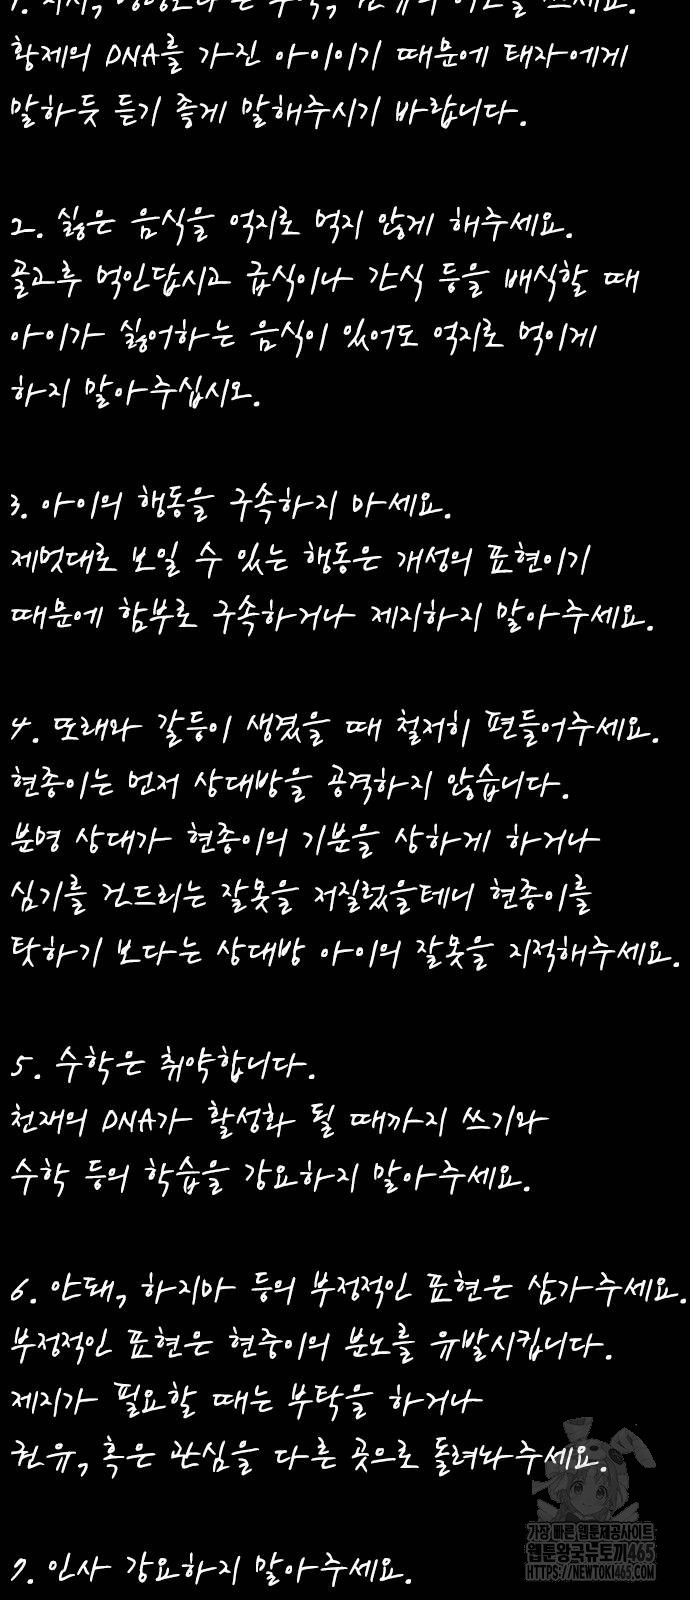 황제의 DNA를 가진 아이이기 때문에 태자에게
말하듯 듣기 좋게 말해주시기 바랍니다.
2. 싫은 음식을 억지로 먹지 않게 해주세요.
골고루 먹인답시고 급식이나 간식 등을 배식할 때
아이가 싫어하는 음식이 있어도 억지로 먹이게
하지 말아주십시오.
3. 아이의 행동을 구속하지 마세요.
제멋대로 보일 수 있는 행동은 개성의 표현이기
때문에 함부로 구속하거나 제지하지 말아주세요.
4. 또래와 갈등이 생겼을 때 철저히 편들어주세요.
현종이는 먼저 상대방을 공격하지 않습니다.
분명 상대가 현종이의 기분을 상하게 하거나
심기를 건드리는 잘못을 저질렀을테니 현종이를
탓하기 보다는 상대방 아이의 잘못을 지적해주세요.
5. 수학은 취약합니다.
천재의 DNA가 활성화 될 때까지 쓰기와
수학 등의 학습을 강요하지 말아주세요.
6. 안돼, 하지마 등의 부정적인 표현은 삼가주세요.
부정적인 표현은 현종이의 분노를 유발시킵니다.
제지가 필요할 때는 부탁을 하거나
권유, 혹은 관심을 다른 곳으로 돌려놔주세요.
7. 인사 강요하지 말아주세요.
가장 빠른 웹툰제공사이트
웹툰왕국뉴토끼465
HTTPS://NEWTOKI465.COM